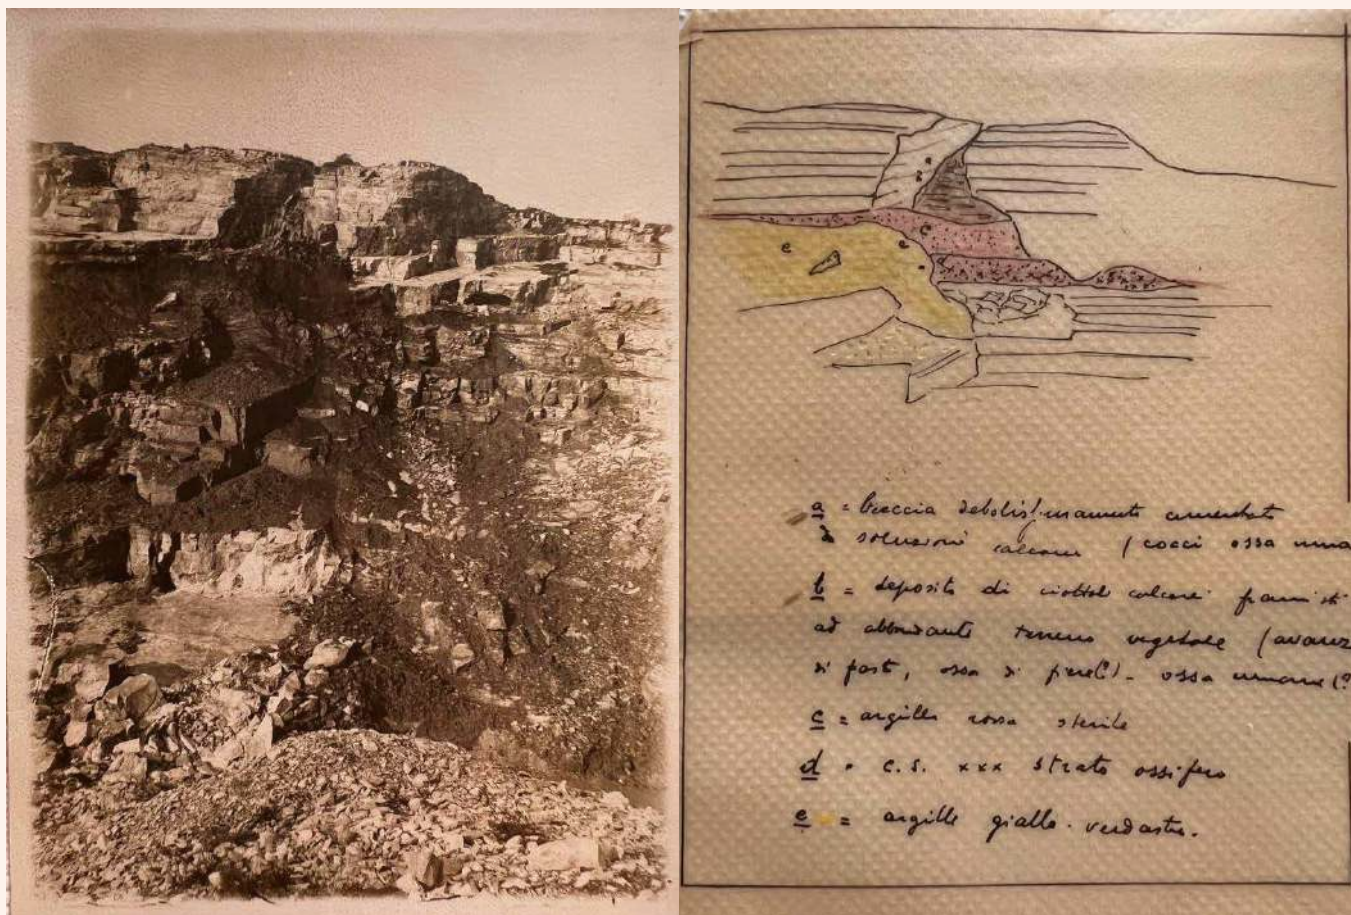 a = breccia debolissimamente cementata
da soluzioni calcaree (cocci ossa
b = deposito di ciottoli calcarei frammisti
ad abbondante terreno vegetale (avanz
di pasti, ossa di - ossa umane (?
c = argilla rossa sterile
d = c.s. xxx strato ossifero
e = argille giallo-verdastre.